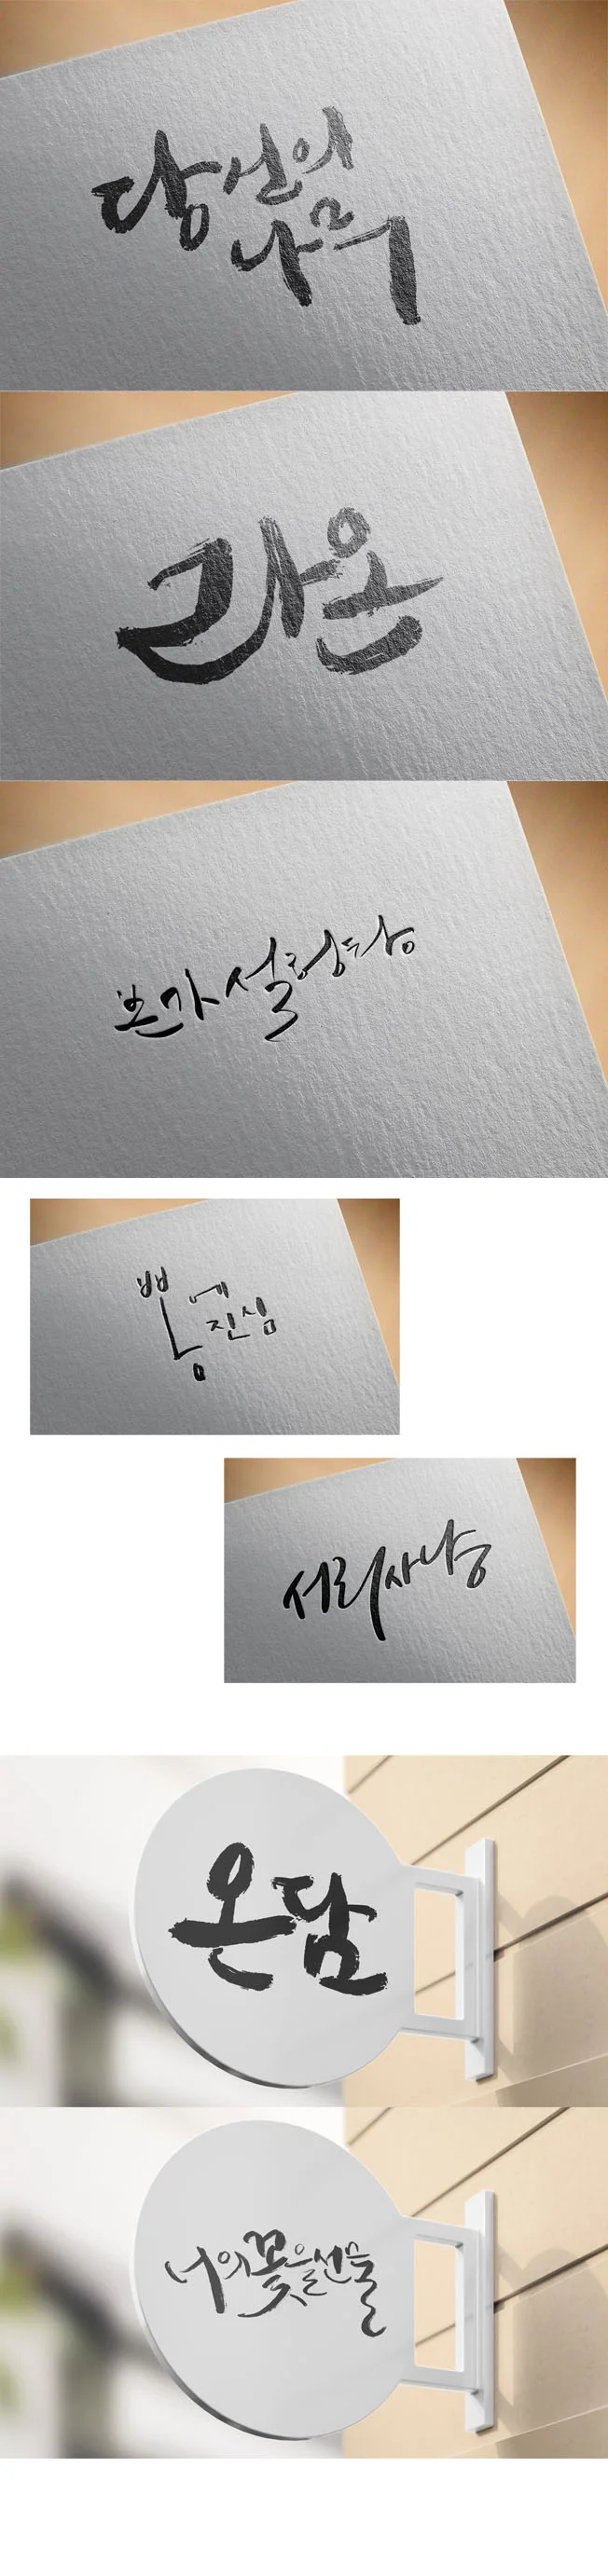 당신의
나무
라온
본가설렁탕
뽕에
진심
서리사냥
온담
너의꽃을선물